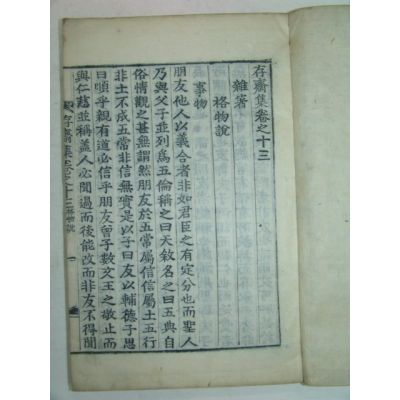 存齋集卷之十三
雜著
格物說
事物
朋友他人以義合者非如君臣之有定分也而聖人
乃與父子君臣爲五倫稱之曰天敘名之曰五典自
俗情觀之甚無謂然朋友於五常屬信信屬土五行
非土不成五常非信無實是以子曰友以輔德子思
曰順乎親有道必信乎朋友曾子數文王之敬止而
與仁慈並稱盖人必聞過而後能改而非友不得聞
存齋集卷之十三 格物說 一